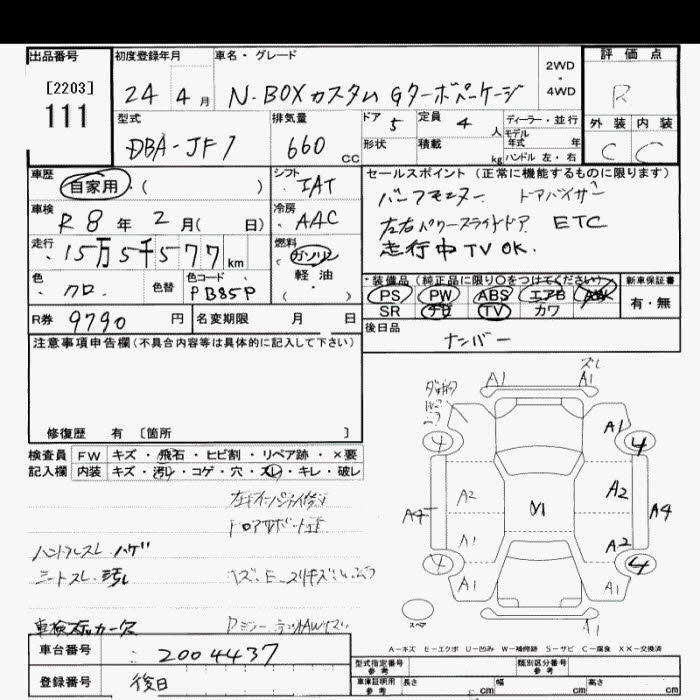 出品番号
[2203]
111
初度登録年月
24 4月
車名・グレード
N-BOXカスタム Gターボパッケージ
2WD
・
4WD
評価点
R
外装 内装
C C
型式
DBA-JF1
排気量
660 CC
ドア 5
形状
定員 4 人
積載 kg
ディーラー・並行
モデル
年式 年
ハンドル 左・右
車歴
自家用・( )
シフト
IAT
車検
R8年 2月( 日)
冷房
AAC
走行
15万5千577km
燃料
ガソリン
軽油・
( )
色
クロ
色替
色コード
PB85P
R券 9790円
名変期限 月 日
セールスポイント(正常に機能するものに限ります)
バックモニター ドアバイザー
左右パワースライドドア ETC
走行中TV OK.
・装備品(純正品に限り○をつけてください)
PS PW ABS エアB AW
SR ナビ TV カワ
新車保証書
有・無
後日品
ナンバー
注意事項申告欄(不具合内容等は具体的に記入して下さい)
修復歴 有 〔箇所 〕
検査員
記入欄
FW キズ・飛石・ヒビ割・リペア跡・×要
内装 キズ・汚れ・コゲ・穴・スレ・キレ・破レ
ハンドルスレ ハゲ
シートスレ・汚れ
車検ステッカー欠
A1 ズレ A1
A1
4 4
A2 A2
A4 A4
A1 A2
4 4
A1 A1
スペア
A1
A-キズ E-エクボ U-凹み W-補修跡 S-サビ C-腐食 XX-交換済
車台番号
2004437
登録番号
後日
型式指定番号
参考
類別区分番号
参考
車庫証明用
参考
長さ cm
幅 cm
高さ cm